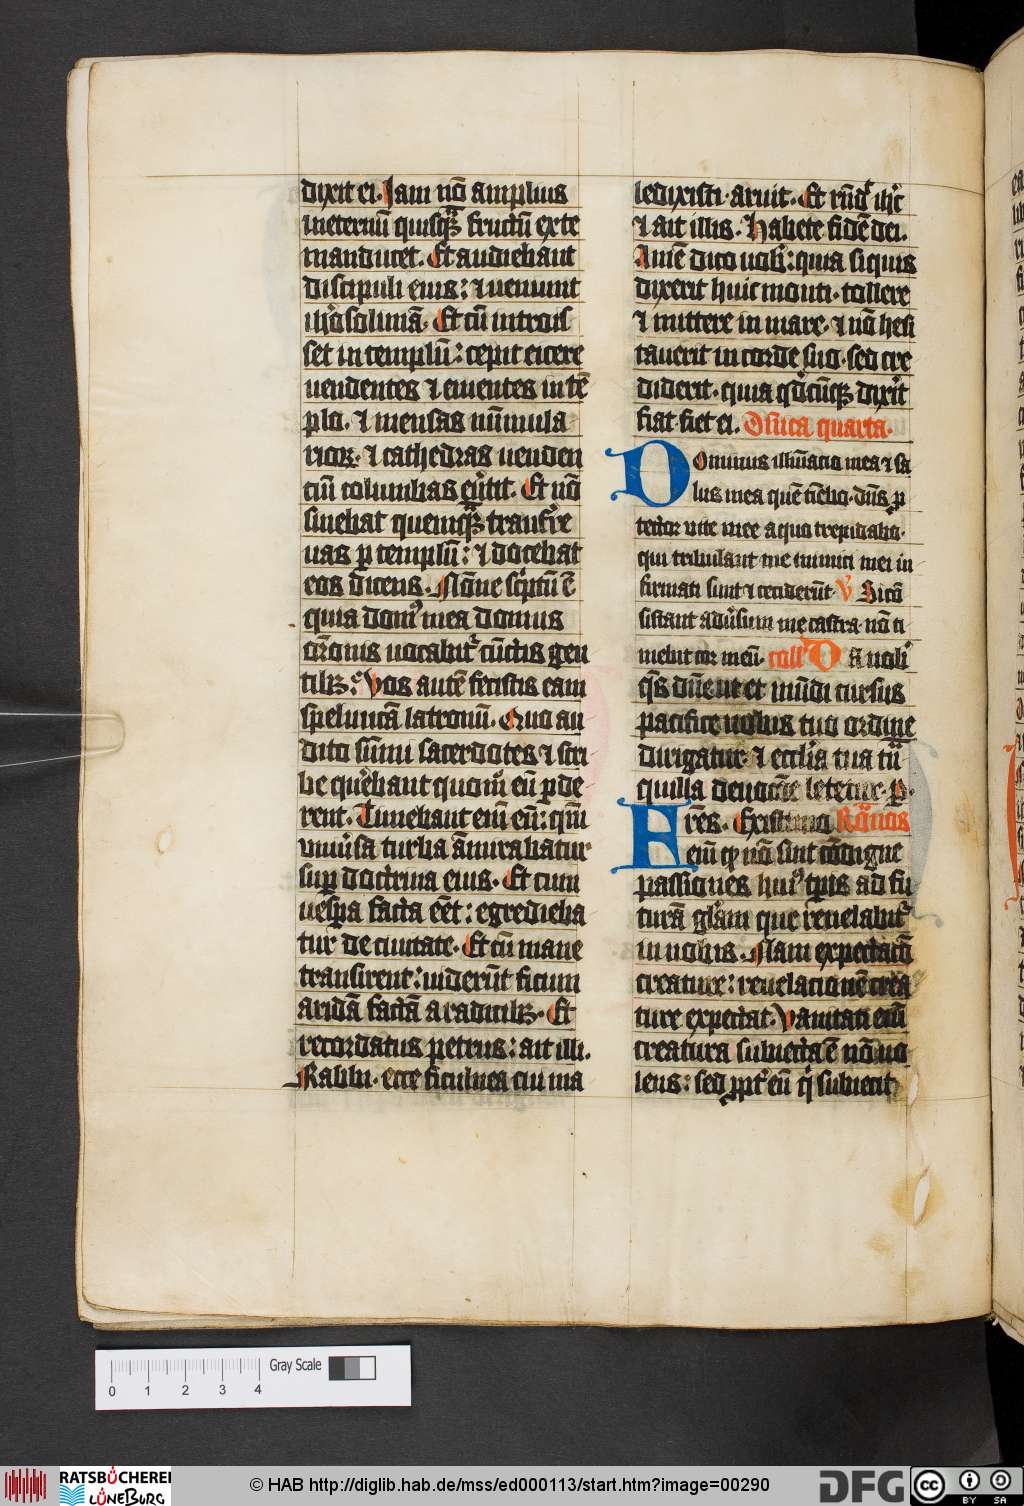 dixit ei. Jam nō amplius
ineternū quisq̄ fructū exte
manducet. Et audiebant
discipuli eius: ⁊ ueniunt
iħosolimā. Et cū introis
set in templū: cepit eicere
uendentes ⁊ ementes in tē
plo. ⁊ mensas nūmula
rioꝝ. ⁊ cathedras uenden
ciū columbas euͥtit. Et nō
sinebat quemqͣꝫ tranſ̄re
uas ꝑ templū: ⁊ docebat
eos dicens. Nōne scͥptū ē
quia domꝰ mea domus
or̄onis uocabitᷣ cūctis gen
tibꝫ: Vos autē fecistis eam
speluncā latronū. Quo au
dito sūmi sacerdotes ⁊ scri
be querebant quom̊ eū ꝑde
rent. Timebant enī eū: qm̄
uniūsa turba āmirabatur
suꝑ doctrina eius. Et cum
uesꝑa facta eēt: egredieba
tur de ciuitate. Et cū mane
transirent: uiderūt ficum
aridā factā a radicibꝫ. Et
recordatus petrus: ait illi.
Rabbi. ecce ficulnea cui ma
ledixisti. aruit. Et rn̄d̄ iħc
⁊ ait illis. Habete fidē dei.
Amē dico uob̄: quia siquis
dixerit huic monti. tollere
⁊ mittere in mare. ⁊ nō hesi
tauerit in corde suo. sed cre
diderit. quia qd̄cūqꝫ dixͥit
fiat. fiet ei. Dn̄ica quarta.
Dominus illūatio mea ⁊ sa
lus mea quē tīebo. dn̄s ꝓ
tector uite mee a quo trepidabo.
qui tribulant me inimici mei in
firmati sunt ⁊ ceciderūt. V̄ Si cō
sistant adūsum me castra nō ti
mebit cor meū. coll' Da nobͥ
qs̄ dn̄e ut et mūdi cursus
pacifice nobis tuo ordine
dirigatur. ⁊ eccl̄ia tua tͣ̄
quilla deuocōe letetur. ꝑ.
Fr̄es. Existimo Ad Romanos
enī ꝙ nō sint cōdigne
passiones huiꝰ tꝑis ad fu
turā glīam que reuelabitᷣ
in nobis. Nam expectacō
creature: reuelacionē crea
ture expectat. Vanitati enī
creatura subiecta ē nō uo
lens: sed ꝓpt̄ eū qͥ subiecit
Gray Scale
0 1 2 3 4
RATSBÜCHEREI
LÜNEBURG
© HAB http://diglib.hab.de/mss/ed000113/start.htm?image=00290
DFG
cc
BY SA